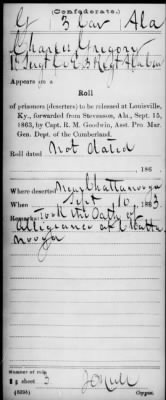 (Confederate.)
G 3 Cav Ala
Charles Gregory
1st Sergt Co. G 3 Regt Alabama
Appears on a
Roll
of prisoners (deserters) to be released at Louisville,
Ky., forwarded from Stevenson, Ala., Sept. 15,
1863, by Capt. R. M. Goodwin, Asst. Pro. Mar.
Gen. Dept. of the Cumberland.
Roll dated
Not dated
186
Where deserted Near Chattanooga
When Sept 10, 1863
Remarks: Took the Oath of
Allegiance at Chatta
nooga
Number of roll:
sheet 3
(639b) Copyist.